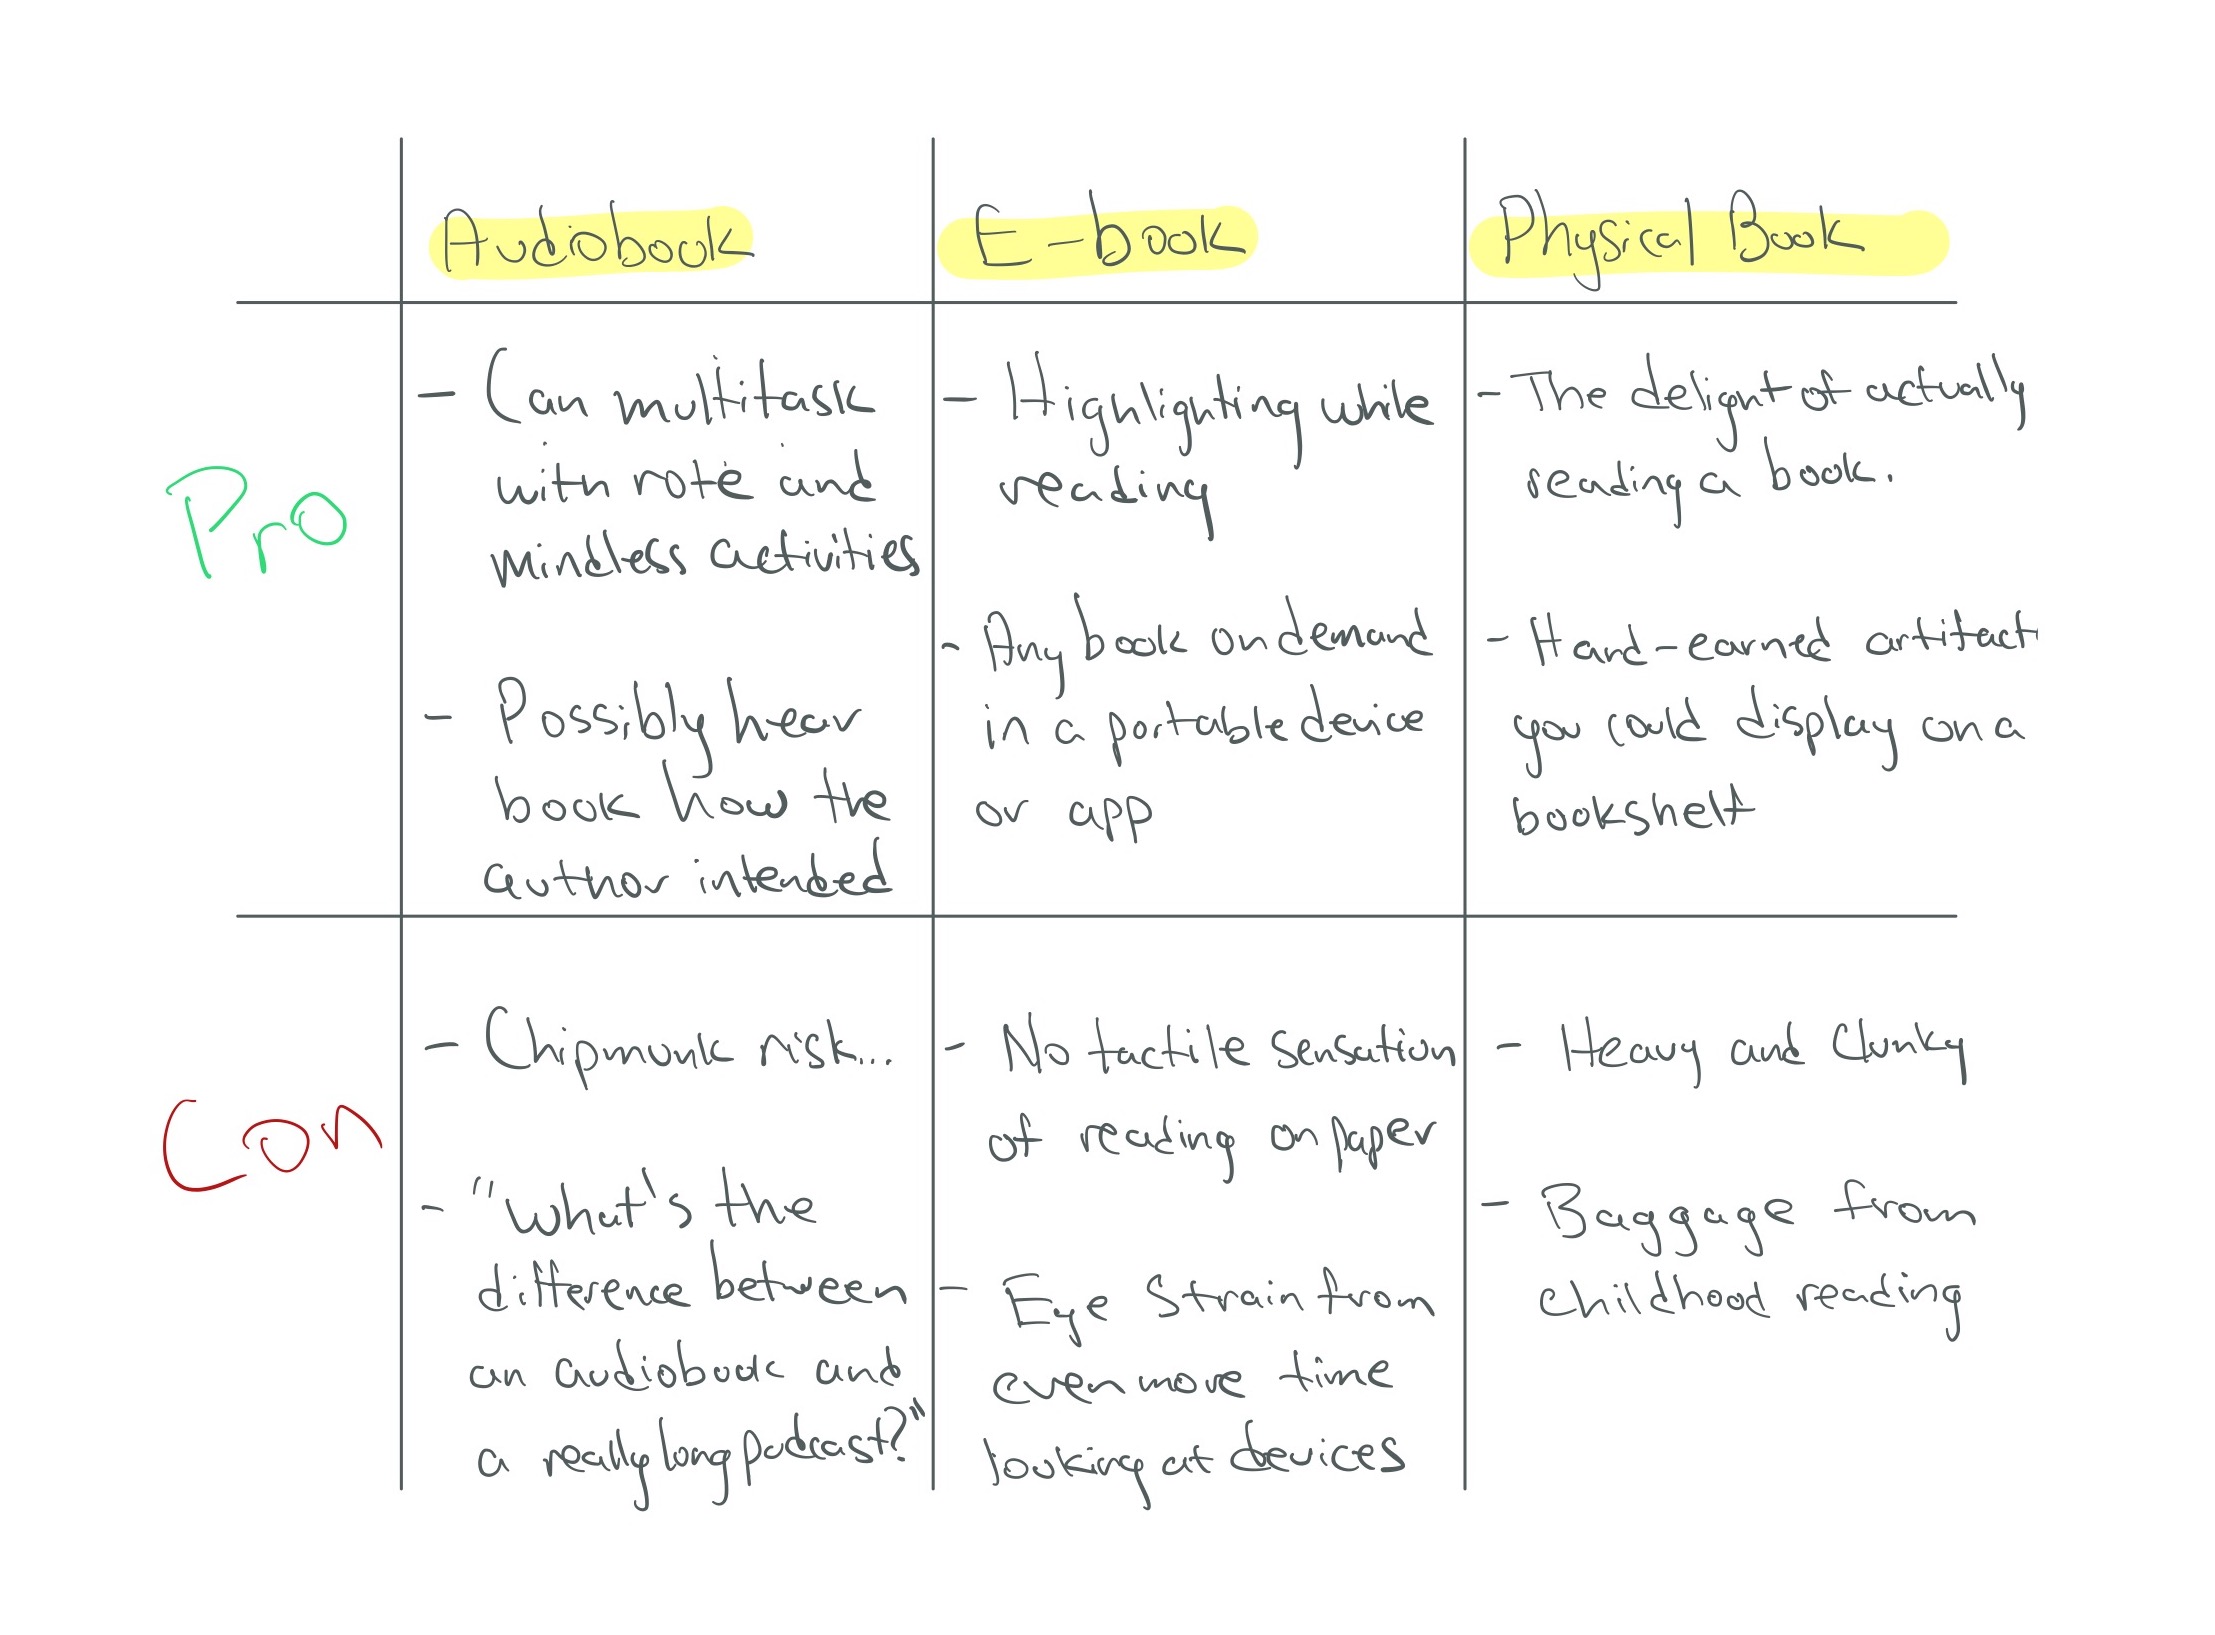 Audiobook
E-book
Physical Book
Pro
- Can multitask
with rote and
mindless activities
- Possibly hear
book how the
author intended
- Highlighting while
reading
- Any book on demand
in a portable device
or app
- The delight of actually
reading a book.
- Hard-earned artifact
you could display on a
bookshelf
Con
- Chipmunk risk...
- "What's the
difference between
an audiobook and
a really long podcast?"
- No tactile sensation
of reading on paper
- Eye strain from
even more time
looking at devices
- Heavy and Clunky
- Baggage from
childhood reading